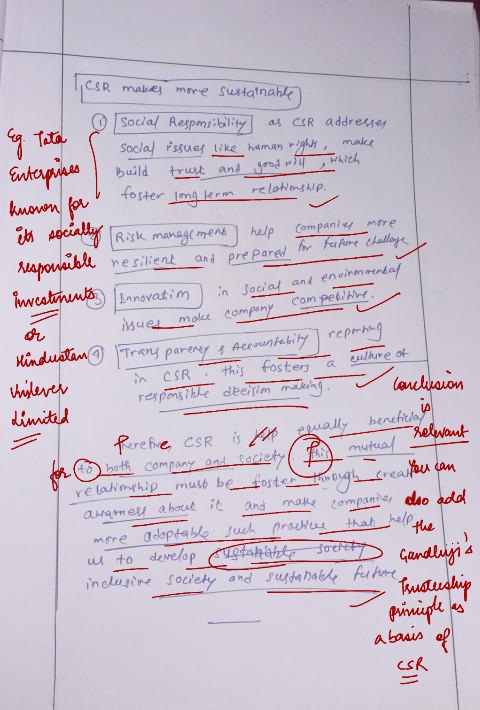 CSR makes more sustainable
① Social Responsibility as CSR addresses
social issues like human rights, make
build trust and good will, which
foster long term relationship.
Risk management help companies more
resilient and prepared for future challenge
③ Innovation in social and environmental
issues make company competitive.
④ Transparency & Accountabity reporting
in CSR, this fosters a culture of
responsible decision making.
Therefore, CSR is equally beneficial
to both company and society. This mutual
relationship must be foster through creat
awarness about it and make companies
more adoptable such practice that help
us to develop sustainable society
inclusive society and sustainable future
Eg. Tata
Enterprises
known for
its socially
responsible
investments
or
Hindustan
Unilever
Limited
for
Conclusion
is
relevant
You can
also add
the
Gandhiji's
Trusteeship
principle as
a basis of
CSR